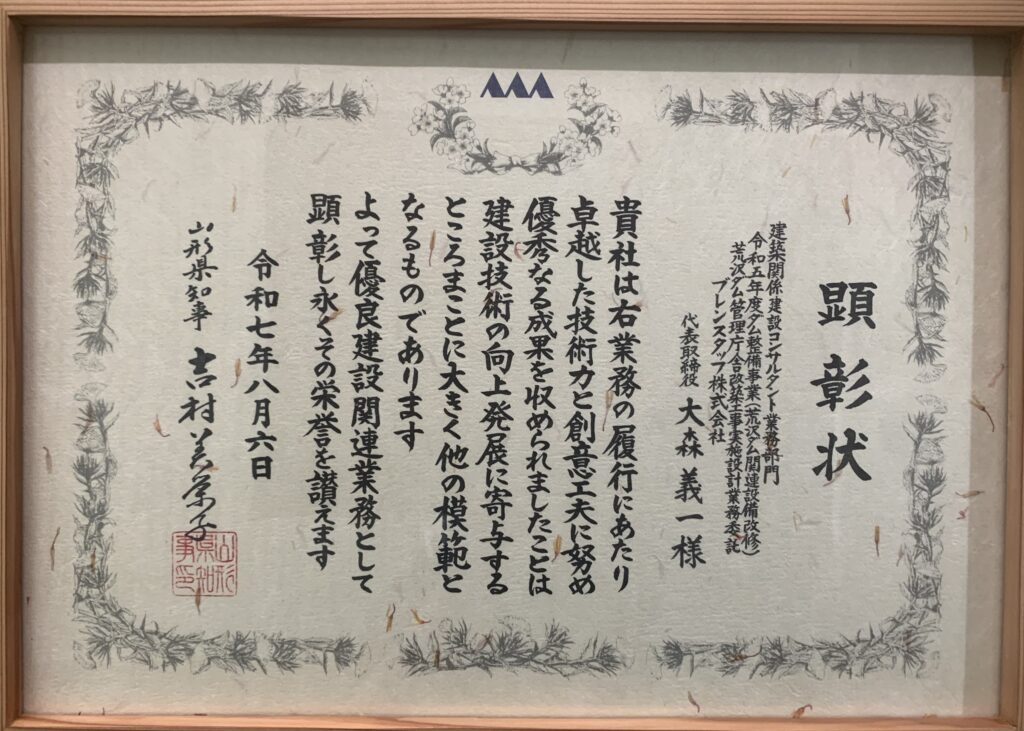 顕彰状
建築関係建設コンサルタント業務部門
令和五年度ダム整備事業(荒沢ダム関連設備改修)
荒沢ダム管理庁舎改築工事実施設計業務委託
ブレンスタッフ株式会社
代表取締役 大森義一様
貴社は右業務の履行にあたり
卓越した技術力と創意工夫に努め
優秀なる成果を収められましたことは
建設技術の向上発展に寄与する
ところまことに大きく他の模範と
なるものであります
よって優良建設関連業務として
顕彰し永くその栄誉を讃えます
令和七年八月六日
山形県知事 吉村美栄子
山形県知事印